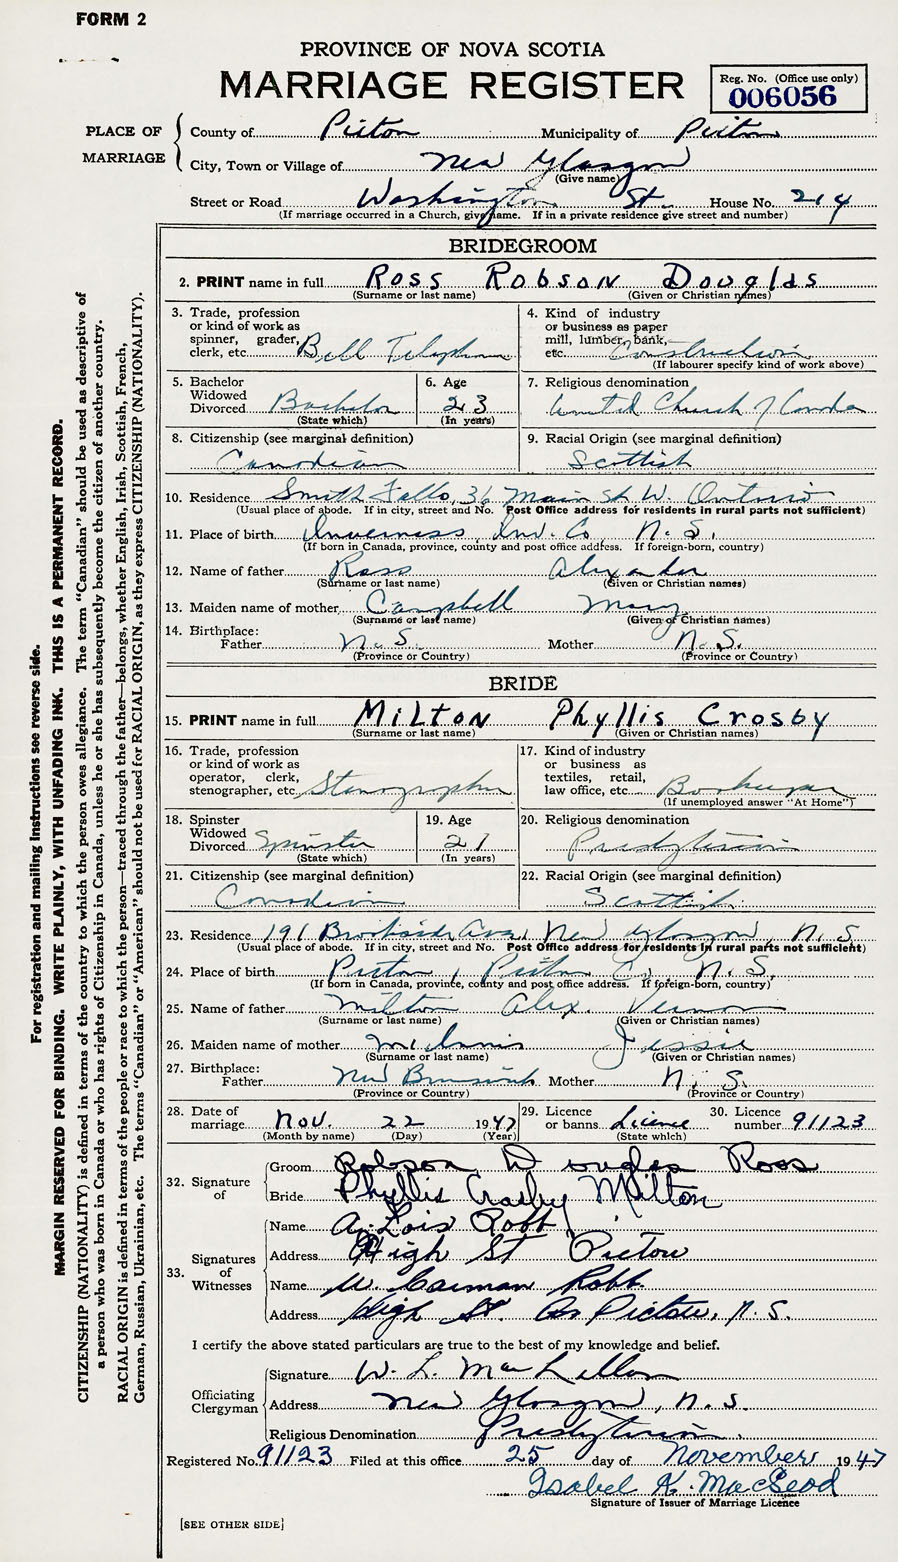 FORM 2
PROVINCE OF NOVA SCOTIA
MARRIAGE REGISTER
Reg. No. (Office use only)
006056
PLACE OF MARRIAGE
County of Pictou Municipality of Pictou
City, Town or Village of New Glasgow
(Give name)
Street or Road Washington St. House No. 214
(If marriage occurred in a Church, give name. If in a private residence give street and number)
BRIDEGROOM
2. PRINT name in full Ross Robson Douglas
(Surname or last name) (Given or Christian names)
3. Trade, profession or kind of work as spinner, grader, clerk, etc. Bell Telephone
4. Kind of industry or business as paper mill, lumber, bank, etc. Construction
(If labourer specify kind of work above)
5. Bachelor Widowed Divorced Bachelor
(State which)
6. Age 23
(In years)
7. Religious denomination United Church of Canada
8. Citizenship (see marginal definition) Canadian
9. Racial Origin (see marginal definition) Scottish
10. Residence Smith Falls, 36 Main St W. Ontario
(Usual place of abode. If in city, street and No. Post Office address for residents in rural parts not sufficient)
11. Place of birth Inverness, Inv. Co, N.S.
(If born in Canada, province, county and post office address. If foreign-born, country)
12. Name of father Ross Alexander
(Surname or last name) (Given or Christian names)
13. Maiden name of mother Campbell Mary
(Surname or last name) (Given or Christian names)
14. Birthplace:
Father N.S. Mother N.S.
(Province or Country) (Province or Country)
BRIDE
15. PRINT name in full Milton Phyllis Crosby
(Surname or last name) (Given or Christian names)
16. Trade, profession or kind of work as operator, clerk, stenographer, etc. Stenographer
17. Kind of industry or business as textiles, retail, law office, etc. Bookkeeper
(If unemployed answer "At Home")
18. Spinster Widowed Divorced Spinster
(State which)
19. Age 21
(In years)
20. Religious denomination Presbyterian
21. Citizenship (see marginal definition) Canadian
22. Racial Origin (see marginal definition) Scottish
23. Residence 191 Brookside Ave, New Glasgow, N.S.
(Usual place of abode. If in city, street and No. Post Office address for residents in rural parts not sufficient)
24. Place of birth Pictou, Pictou Co., N.S.
(If born in Canada, province, county and post office address. If foreign-born, country)
25. Name of father Milton Alex. Vernon
(Surname or last name) (Given or Christian names)
26. Maiden name of mother McInnis Jessie
(Surname or last name) (Given or Christian names)
27. Birthplace:
Father New Brunswick Mother N.S.
(Province or Country) (Province or Country)
28. Date of marriage Nov. 22 1947
(Month by name) (Day) (Year)
29. Licence or banns License
(State which)
30. Licence number 91123
32. Signature of
Groom Robson Douglas Ross
Bride Phyllis Crosby Milton
33. Signatures of Witnesses
Name A. Lois Robb
Address High St Pictou
Name W. Robb
Address High St. Pictou, N.S.
I certify the above stated particulars are true to the best of my knowledge and belief.
Officiating Clergyman
Signature W. L. MacLellan
Address New Glasgow, N.S.
Religious Denomination Presbyterian
Registered No. 91123 Filed at this office 25 day of November 1947
Isabel K. MacLeod
Signature of Issuer of Marriage Licence
[SEE OTHER SIDE]
For registration and mailing instructions see reverse side.
MARGIN RESERVED FOR BINDING. WRITE PLAINLY, WITH UNFADING INK. THIS IS A PERMANENT RECORD.
CITIZENSHIP (NATIONALITY) is defined in terms of the country to which the person owes allegiance. The term "Canadian" should be used as descriptive of
a person who was born in Canada or who has rights of Citizenship in Canada, unless he or she has subsequently become the citizen of another country.
RACIAL ORIGIN is defined in terms of the people or race to which the person—traced through the father—belongs, whether English, Irish, Scottish, French,
German, Russian, Ukrainian, etc. The terms "Canadian" or "American" should not be used for RACIAL ORIGIN, as they express CITIZENSHIP (NATIONALITY).